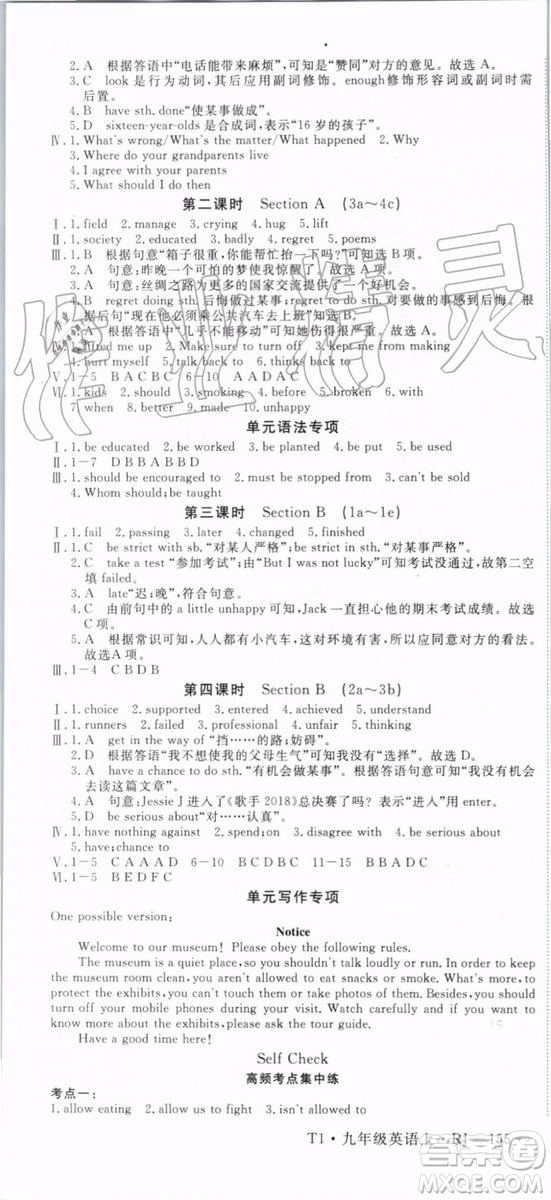 2. A　根据答语中“电话能带来麻烦”可知是“赞同”对方的意见。故选 A。
3. C　look 是行为动词，其后应用副词修饰。enough修饰形容词或副词时需
后置。
4. B　have sth. done“使某事做成”。
5. D　sixteen-year-olds 是合成词，表示“16 岁的孩子”。
Ⅳ. 1. What's wrong/What's the matter/What happened　2. Why
3. Where do your grandparents live
4. I agree with your parents
5. What should I do then
第二课时　Section A　(3a～4c)
Ⅰ. 1. field　2. manage　3. crying　4. hug　5. lift
Ⅱ. 1. society　2. educated　3. badly　4. regret　5. poems
Ⅲ. 1. B　根据句意“箱子很重，你能帮忙抬一下吗？”可知选 B 项。
2. A　句意：昨晚一个可怕的梦使我惊醒了。故选 A。
3. A　句意：丝绸之路为更多的国家交流提供了一个好机会。
4. B　regret doing sth. 后悔做过某事；regret to do sth. 对要做的事感到后悔。根
据后句“现在他必须乘公共汽车去那里”可知选 B。
5. A　根据答语中“几乎不能移动”可知她伤得很严重。故选 A。
Ⅳ. 1. lifted me up　2. Make sure to turn off　3. kept me from making
4. hurt myself　5. talk back to　6. thinks back to
Ⅴ. 1－5　BACBC　6－10　AADAC
Ⅵ. 1. kids　2. should　3. smoking　4. before　5. broken　6. with
7. when　8. better　9. made　10. unhappy
单元语法专项
Ⅰ. 1. be educated　2. worked　3. be planted　4. put　5. be allowed
Ⅱ. 1－7　DBBABBD
Ⅲ. 1. should be encouraged to　2. must be cleaned　3. can't be put off
4. Whom should; be taught
第三课时　Section B　(1a～1e)
Ⅰ. 1. fail　2. passing　3. later　4. changed　5. finished
Ⅱ. 1. C　be strict with sb. “对某人严格”；be strict in sth. “对某事严格”。
2. C　take a test “参加考试”；由“But I was not lucky”可知考试没过，故第二空
填 failed。
3. A　late“迟；晚”，符合句意。
4. C　由前句中的 a little unhappy 可知，Jack 一直担心他的期末考试成绩。故选
C 项。
5. A　根据常识可知，人人都有小汽车，这对环境有害，所以应同意对方的看法。
故选 A 项。
Ⅲ. 1－4　CBDB
第四课时　Section B　(2a～3b)
Ⅰ. 1. choice　2. supported　3. entering　4. achieved　5. understand
Ⅱ. 1. runners　2. failed　3. professional　4. unfair　5. smoking
Ⅲ. 1. A　get in the way of “挡……的路；妨碍”。
2. D　根据答语“我不想使我的父母生气”可知我没有“选择”。故选 D。
3. A　have a chance to do sth. “有机会做某事”。根据句意可知“我没有机会
去读这篇文章”。
4. A　句意：Jessie J 进入了《歌手 2018》总决赛了吗？表示“进入”用 enter。
5. D　be serious about “对……认真”。
Ⅳ. 1. have nothing against　2. spend; on　3. disagree with　4. serious about
5. have; chance to
Ⅴ. 1－5　CAAAD　6－10　CBBCA　11－15　BDCAD
Ⅵ. 1－5　BFDEC
单元写作专项
One possible version:
Notice
Welcome to our museum! Please obey the following rules.
The museum is a quiet place, so you shouldn't talk loudly or run. In order to keep
the museum room clean, you aren't allowed to eat snacks or smoke. What's more, to
protect the exhibits, you can't touch them or take photos of them. Besides, you should
turn off your mobile phones during your visit. Watch carefully and if you want to
know more about the exhibits, please ask the tour guide.
Have a good time here!
Self Check
高频考点集中练
考点一：
1. allow eating　2. allow us to fight　3. are not allowed to
T1·九年级英语上·RJ　155